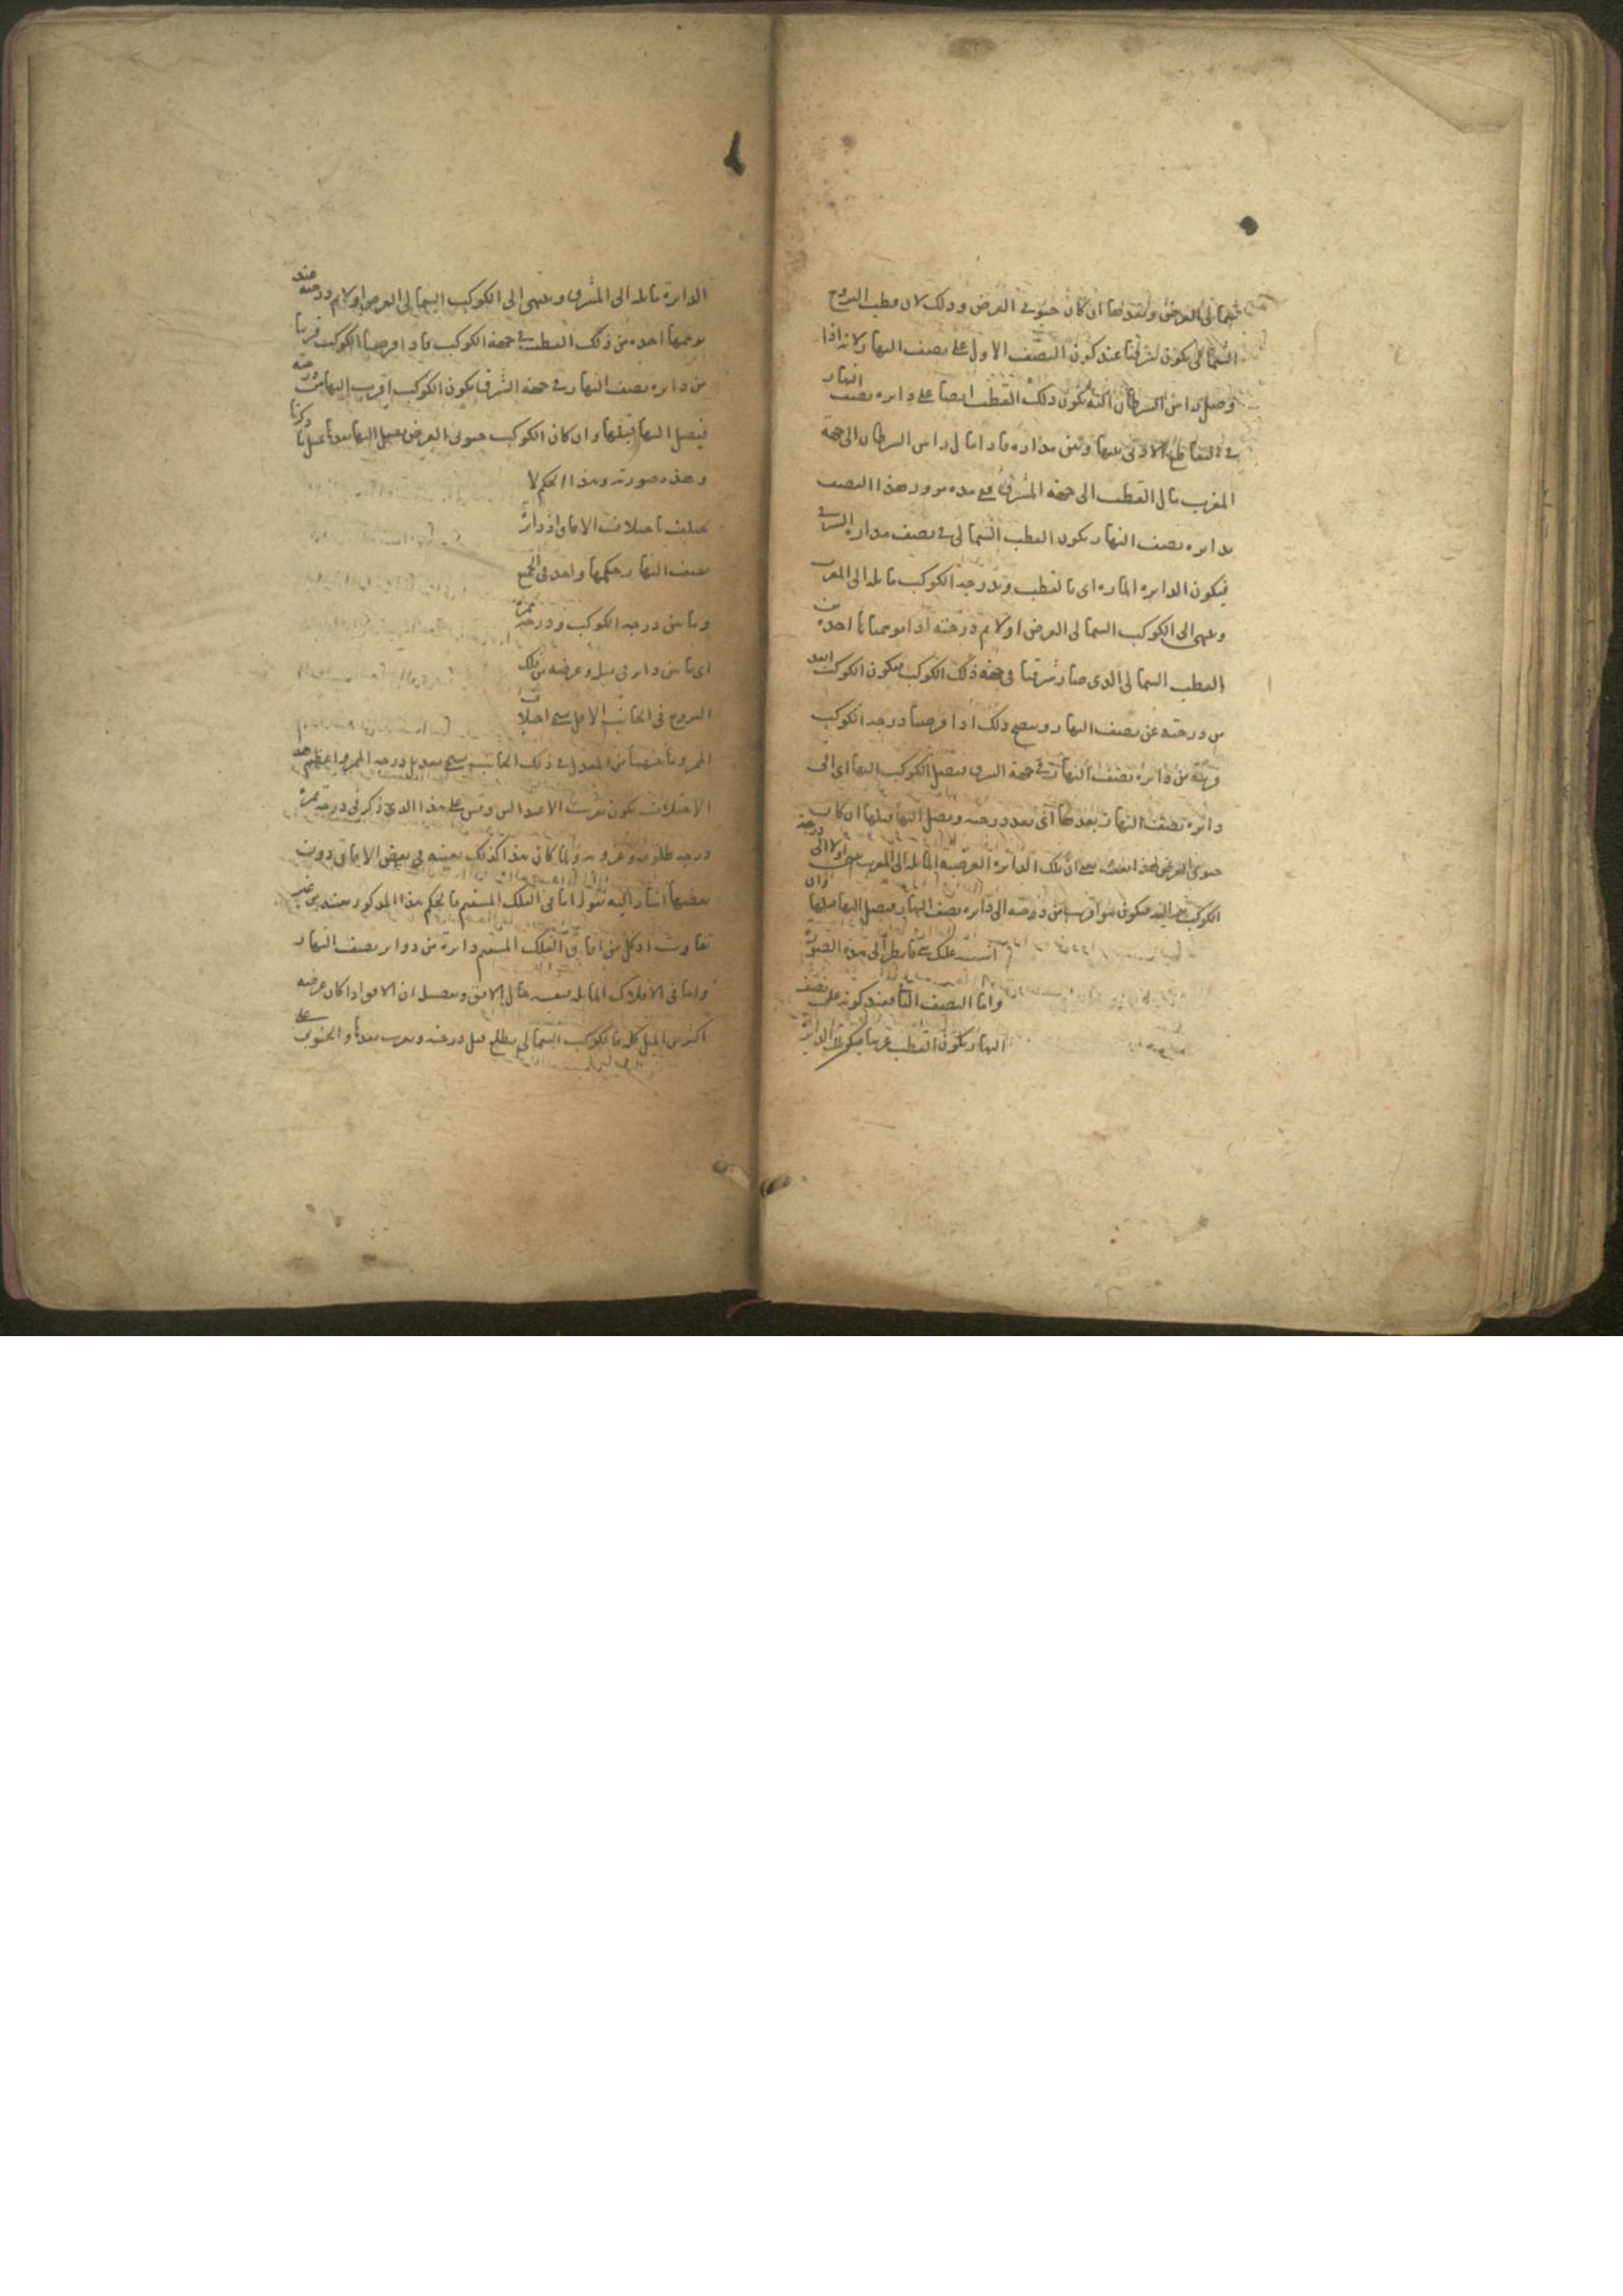 شمالى العرض وبعدها ان كان جنوبى العرض وذلك لان قطب البروج
الشمالى يكون شرقيا عند كون النصف الاول على نصف النهار لانه اذا
وصل راس السرطان اليه يكون ذلك القطب ايضا على دايره نصف النهار
فى التقاطع الادنى بينها وبين مداره فاذا مال راس السرطان الى جهة
المغرب مال القطب الى جهة المشرق فمع مده مرور هذا النصف
بدايره نصف النهار يكون القطب الشمالى فى نصف مداره الشرقى
فيكون الدايره الماره اى بالقطب وبدرجة الكوكب مايله الى المغرب
وينتهى الى الكوكب الشمالى العرض اولا ثم درجته اذا توهمناها اخذه من
القطب الشمالى الذى صار شرقيا فى جهة ذلك الكوكب فيكون الكوكب ابعد
من درجته عن نصف النهار ويتضح ذلك اذا فرضنا درجة الكوكب
قريبه من دايره نصف النهار فى جهة الشرق فيصل الكوكب اليها اى الى
دايره نصف النهار بعدها اى بعد درجته ويصل اليها قبلها ان كان
جنوبى العرض لهذا بعينه يعنى ان تلك الدايره العرضية المايله الى المغرب ينتهى اولا الى درجة
الكوكب ثم اليه فيكون هو اقرب من درجته الى دايره نصف النهار فيصل اليها قبلها وان
اشتبه عليك شى فانظر الى هذه الصورة
واما النصف الثانى فعند كونه على نصف
النهار يكون القطب غربيا فيكون الدايرة
الدايرة مايله الى المشرق وينتهى الى الكوكب الشمالى العرض اولا ثم درجته عند
توهمها اخذه من ذلك القطب فى جهة الكوكب فاذا فرضنا الكوكب قريبا
من دايره نصف النهار فى جهة الشرق يكون الكوكب اقرب اليها من درجته
فيصل اليها قبلها وان كان الكوكب جنوبى العرض يصل اليها بعدها بمثل ما ذكرنا
وهذه صورته وهذا الحكم لا
يختلف باختلاف الافاق اذ دايرة
نصف النهار حكمها واحد فى الجميع
وما بين درجة الكوكب ودرجة ممره
اى ما بين دايرتى ميله وعرضه من فلك
البروج فى الجانب الاقل يسمى اختلاف
الممر وما بينهما من المعدل فى ذلك الجانب يسمى تعديل درجة الممر واعظم هذا
الاختلاف يكون بقرب الاعتدالين وقس على هذا الذى ذكر فى درجة ممره
درجة طلوعه وغروبه ولما كان هذا كذلك بعينه فى بعض الافاق دون
بعضها اشار اليه بقوله اما فى الفلك المستقيم فالحكم هذا المذكور بعينه من غير
تفاوت اذ كل من افاق الفلك المستقيم دايرة من دواير نصف النهار
واما فى الافلاك المايله فبحسب حال الافق وتفصيله ان الافق اذا كان عرضه
اكثر من الميل كله فالكوكب الشمالى يطلع قبل درجته ويغرب بعدها والجنوبى على